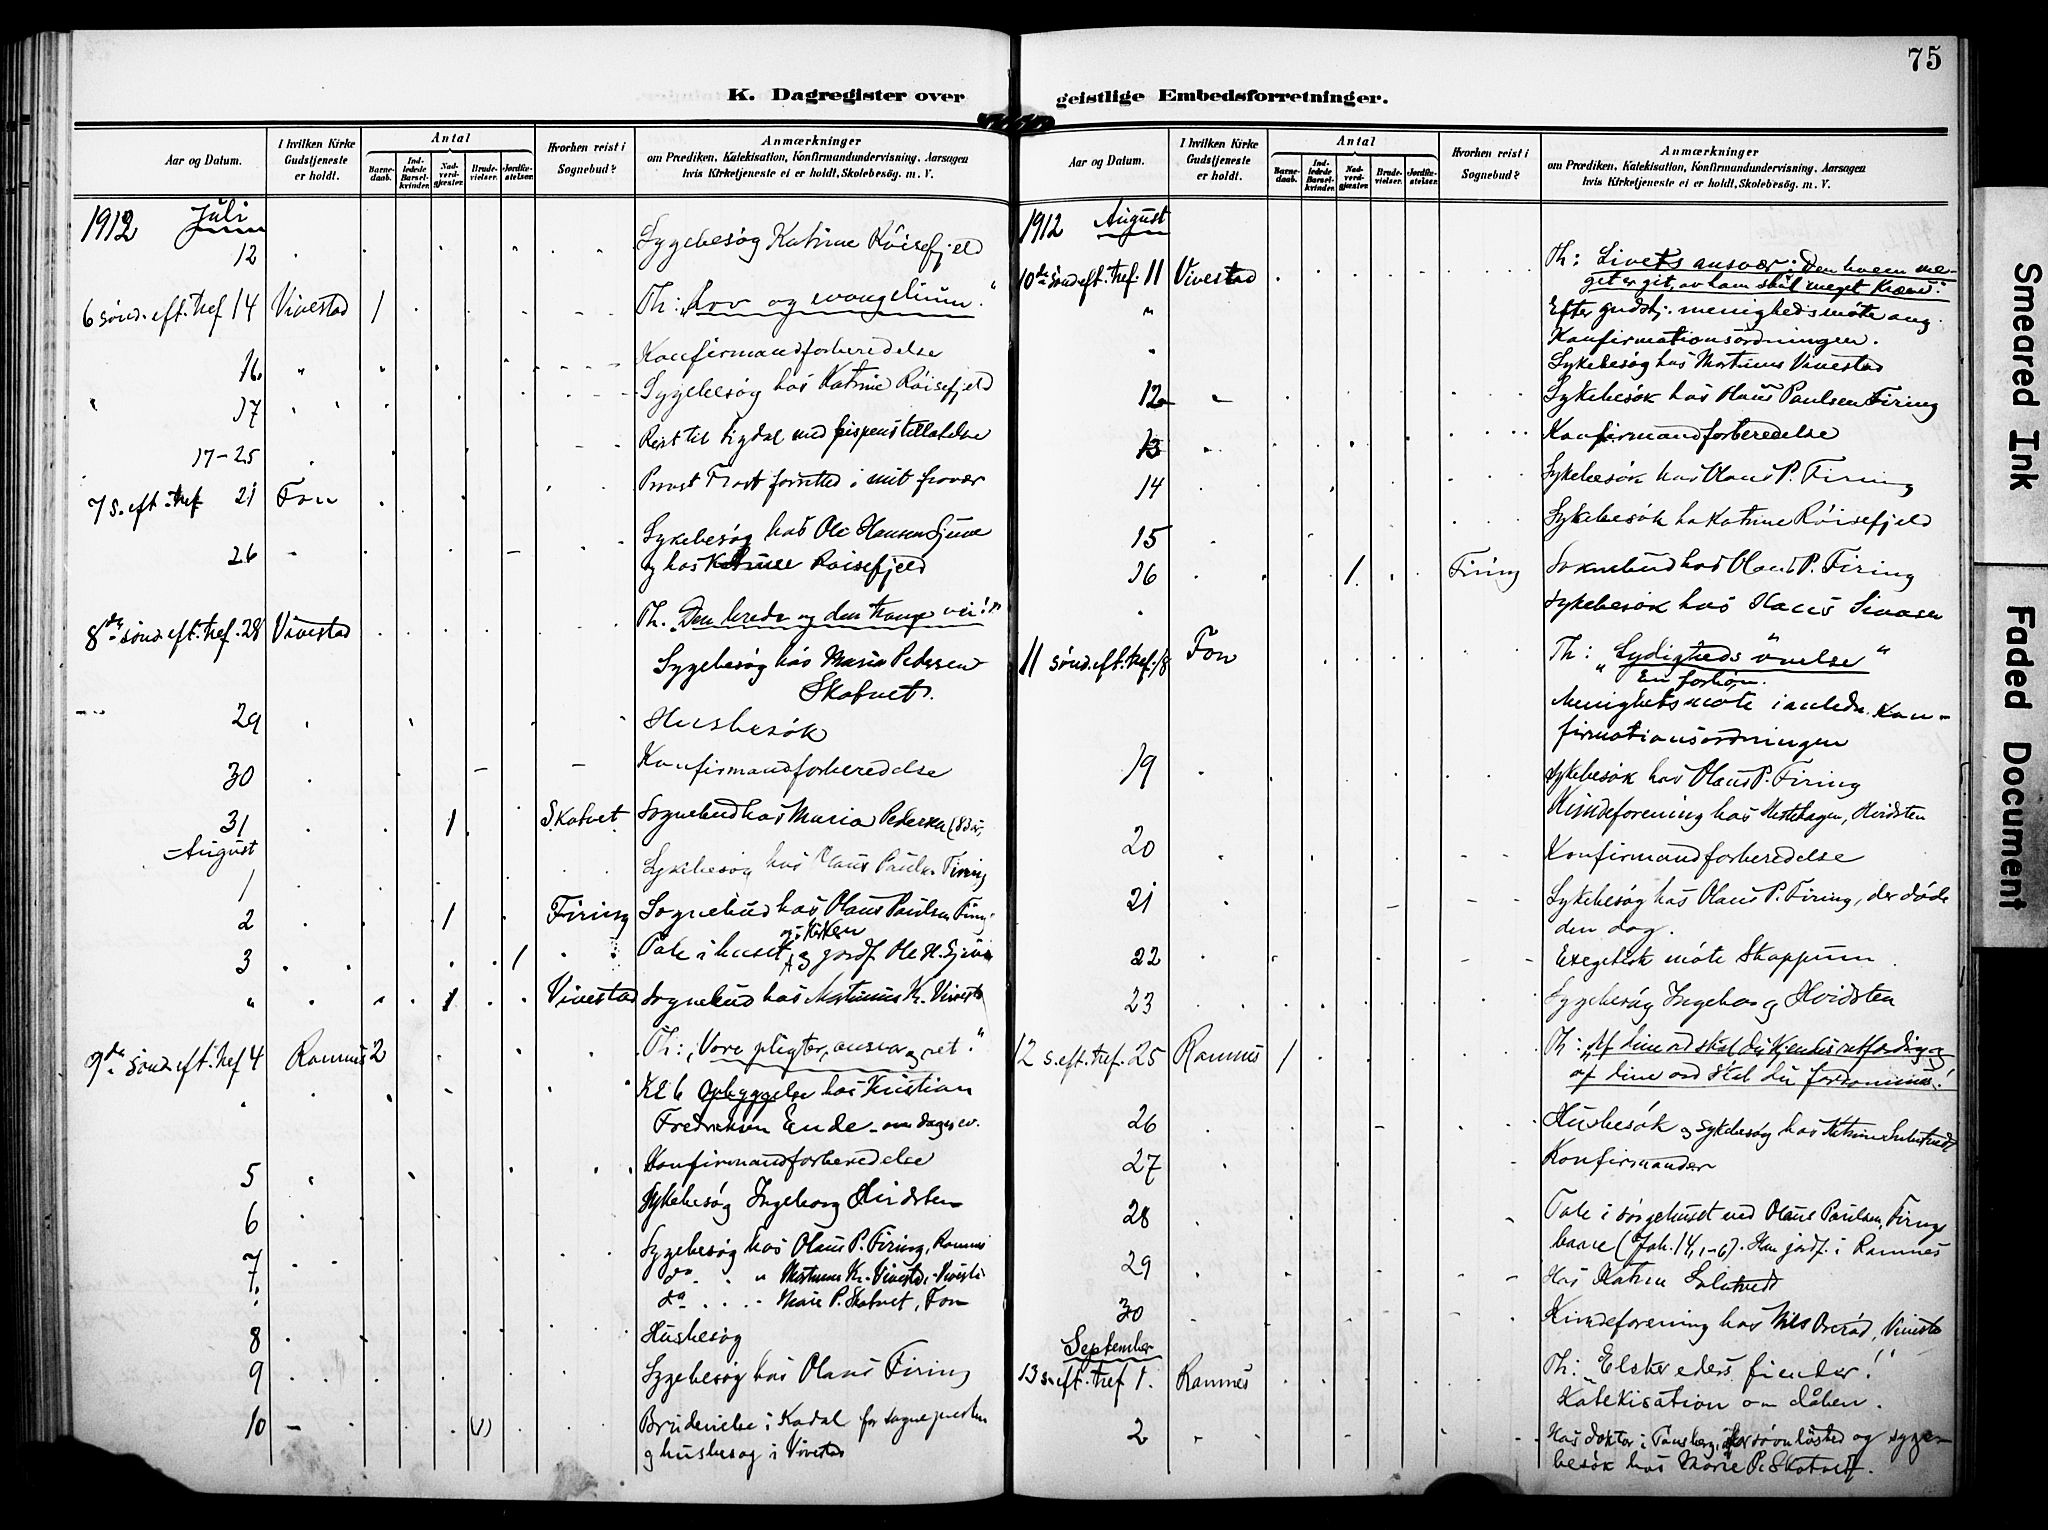 75
K. Dagregister over geistlige Embedsforretninger.
Aar og Datum.
I hvilken Kirke Gudstjeneste er holdt.
Antal
Barnedaab.
Indledede Barselkvinder.
Nadverdgjester.
Brudevielser.
Jordfæstelser.
Hvorhen reist i Sognebud?
Anmærkninger
om Prædiken, Katekisation, Konfirmandundervisning, Aarsagen
hvis Kirketjeneste ei er holdt, Skolebesøg. m. V.
1912 Juli
12 Sygebesøg Katrine Röisefjeld
6 sönd. eft. tref 14 Vivestad 1 Th: „Lov og evangelium."
16. " Konfirmandforberedelse
17 Sygebesøg hos Katrine Röisefjeld
17-25 Reist til Sigdal med bispens tilladelse
7 s. eft. tref 21 Fon Provst forretted i mit fravær
26 Sykebesøg hos Ole Hansen
og hos Katrine Röisefjeld
8de sönd. eft. tref. 28 Vivestad Th. „Den brede og den trange vei!"
Sygebesøg hos Maria Pedersen
Skatvet.
29 Husbesök
30 Konfirmandforberedelse
31 1 Skatvet Sognebud hos Maria Pedersen (83 år.
August
1 Sykebesøg hos Olaus Paulsen Firing
2 1 Firing Sognebud hos Olaus Paulsen Firing
og i kirken
3 1 Tale i huset og jordf. Ole H.
" 1 Vivestad Sognebud hos Martinus Kr. Vivestad
9de sönd. eft. tref 4 Ramnes 2 Th: „Vore pligter, ansvar og ret."
Kl 6 Opbyggelse hos Kristian
Fredriksen Ende
5 Konfirmandforberedelse
6 Sykebesøg Ingeborg Hvidsten
7 Sygebesøg hos Olaus P. Firing, Ramnes
7. do " Martinus Kr. Vivestad, Vivestad
do " Marie P. Skatvet, Fon
8 Husbesøg
9 Sygebesøg hos Olaus Firing
10 (1) Brudevielse i Kodal for sognepresten
og husbesøg i Vivestad
K. Dagregister over geistlige Embedsforretninger.
Aar og Datum.
I hvilken Kirke Gudstjeneste er holdt.
Antal
Barnedaab.
Indledede Barselkvinder.
Nadverdgjester.
Brudevielser.
Jordfæstelser.
Hvorhen reist i Sognebud?
Anmærkninger
om Prædiken, Katekisation, Konfirmandundervisning, Aarsagen
hvis Kirketjeneste ei er holdt, Skolebesøg. m. V.
1912 August
10de sönd eft. tref. 11 Vivestad Th: Livets ansvar: Den hvem me-
get er git, av ham skal meget kræves.
" Efter gudstj. menighedsmöte ang.
Konfirmationsordningen.
Sykebesøg hos Martinus Vivestad
12 Sykebesök hos Olaus Paulsen Firing
13 Konfirmandforberedelse
14 Sykebesök hos Olaus P. Firing
15 Sykebesök hos Katrine Röisefjeld
16 1 Firing Soknebud hos Olaus P. Firing
Sykebesök hos
11 sönd. eft. tref. 18 Fon Th: „Lydigheds övelse"
Menighetsmöte i anledn. Kon-
firmationsordningen
19 Sykebesök hos Olaus P. Firing
Kvindeforening hos Hestehagen, Hvidsten
20 Konfirmandforberedelse
21 Sykebesøg hos Olaus P. Firing, der döde
den dag.
22 Exegetisk möte Skoppum
23 Sygebesøg Ingeborg Hvidsten
12 s. eft. tref. 25 Ramnes 1 Th: „Af dine ord skal du kjendes retfærdig og
af dine ord skal du fordömmes!
26 Husbesök og sykebesøg hos Katrine
27 Konfirmander
28 Tale i sörgehuset ved Olaus Paulsen Firings
baare (Joh. 14, 1-6). Han jordf. i Ramnes
29 Hos Katrine
30 Kvindeforening hos Nils, Vivestad
September
13 s. eft. tref 1. Ramnes Th: „Elsker eders fiender!"
Katekisation om dåben.
2 Hos doktor i Tönsberg, og syge-
besök hos Marie P. Skatvet.
Smeared Ink
Faded Document